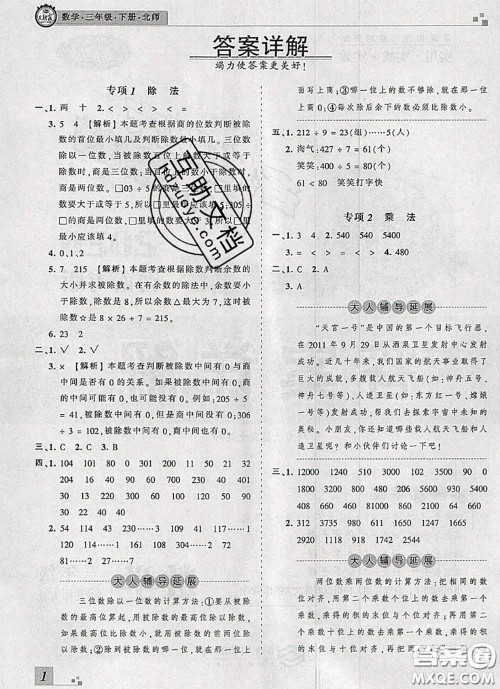 数学·三年级·下册·北师
答案详解
竭力使答案更美好!
专项1 除 法
一、1. 两 十 2. < > < = >
3. 5 4 【解析】本题考查根据商的位数判断被除
数的首位最小填几及判断除数最小填几。三位数
除以一位数,当被除数百位上的数大于或等于
除数时,商是三位数;当百位上的数小于除数
时,商是两位数。
的商是两位数,
最小应该填4。
4. 0、1、2
5. 7 215 【解析】本题考查根据除数判断余数的
大小并求被除数。在有余数的除法中,余数要
比除数小,除数是8,所以余数△最大为7,这时
被除数☆是 8 × 26 + 7 = 215。
6. 23 2
二、1. √ 2. √
3. × 【解析】本题考查判断被除数中间有0与商中
间是否有0的关系。如果被除数中间有0,商的
中间可能有0,也可能没有0,例如:205 ÷ 5
= 41,被除数中间有0,但商中间没有0;306 ÷ 3
= 102,被除数中间有0,商中间也有0。
三、1. C 2. C 3. B
四、1. 104 180 301 200 11 50 32
324 32 104 110 90 201 40
30 13 90 42 43 220
2. 54 114 230……2 117……4
151……5 140……2
大人辅导延展
三位数除以一位数的计算方法:①要从被除
数的最高位除起,用除数去除被除数的最高位,如
果最高位比除数小,就用除数去除被除数的前两位;
②除到被除数的哪一位,就把商写在那一位
1
面写上商;③哪一位上的数不够除,就在哪一位上
商0;④每次除后余下的数必须比除数小。
五、1. 212 ÷ 9 = 23(组)……5(人)
2. 淘气:427 ÷ 7 = 61(个)
笑笑:400 ÷ 5 = 80(个)
61 < 80 笑笑打字快
专项2 乘 法
一、1. 340 2. 540 5400
3. < > = < 4. 480
二、1. C 2. A
大人辅导延展
“天宫一号”是中国的第一个目标飞行器,
在2011年9月29日从酒泉卫星发射中心发射
成功。近几十年来,我们国家的航天事业取得了
巨大的成就,多艘载人航天飞船(如:神舟五号、
神舟七号等)、人造卫星(如:东方红一号、嫦娥
一号等)发射成功,帮助人们探索宇宙中未知的
奥秘。小朋友,你们还知道哪些载人航天飞船和
人造卫星呢?和小伙伴们讨论一下吧!
三、1. 12000 2400 560 240 1000
3200 900 540 1000 2100
4000 900 330 1300 640
2. 312 637 4482 1525 1554
1150 3182 1242
大人辅导延展
两位数乘两位数的计算方法:把相同的数位
对齐,先用下面个位上的数去乘上面的两位数,
乘得的积的末位与个位对齐;再用下面十位上
的数去乘上面的两位数,乘得的积的末位与十